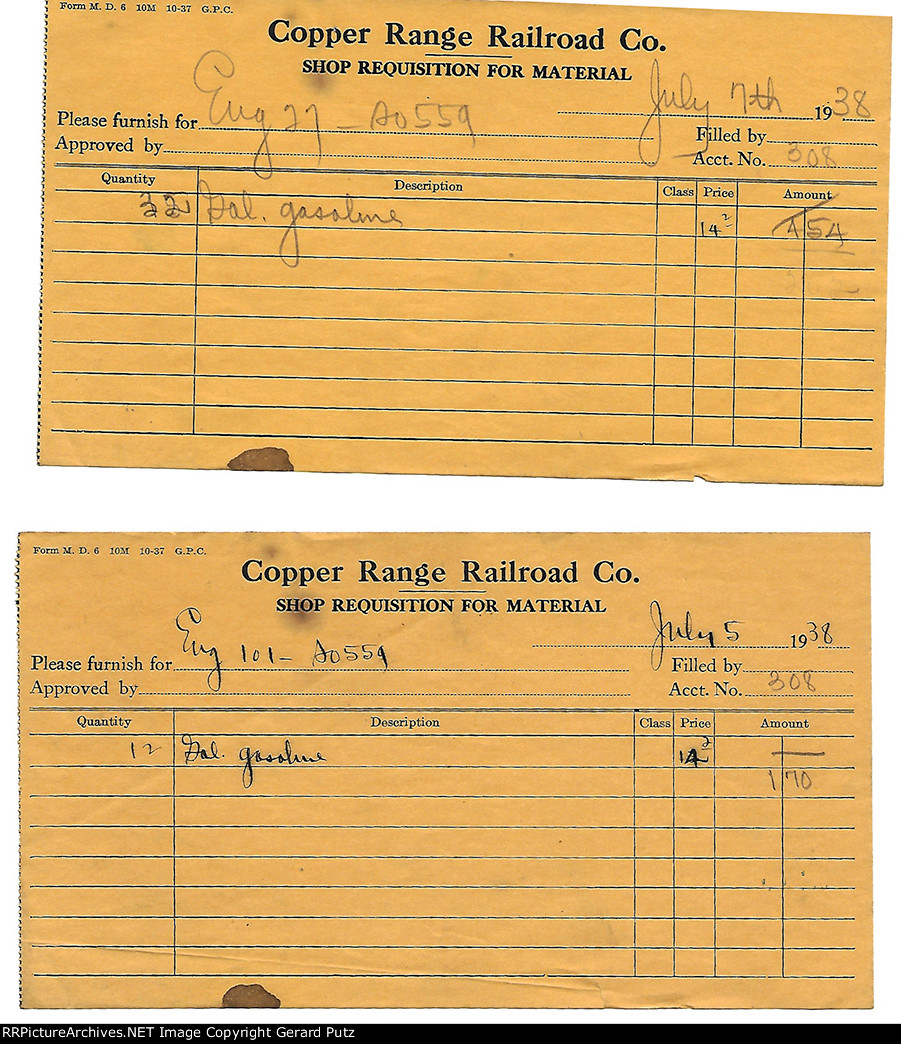 Form M. D. 6 10M 10-37 G.P.C.
Copper Range Railroad Co.
SHOP REQUISITION FOR MATERIAL
July 7th 1938
Please furnish for Eng 27 - Ao559
Filled by
Approved by
Acct. No. 308
Quantity Description Class Price Amount
32 Gal. gasoline 14² 4 54
Form M. D. 6 10M 10-37 G.P.C.
Copper Range Railroad Co.
SHOP REQUISITION FOR MATERIAL
July 5 1938
Please furnish for Eng 101 - Ao559
Filled by
Approved by
Acct. No. 308
Quantity Description Class Price Amount
12 Gal. gasoline 14²
1 70
RRPictureArchives.NET Image Copyright Gerard Putz